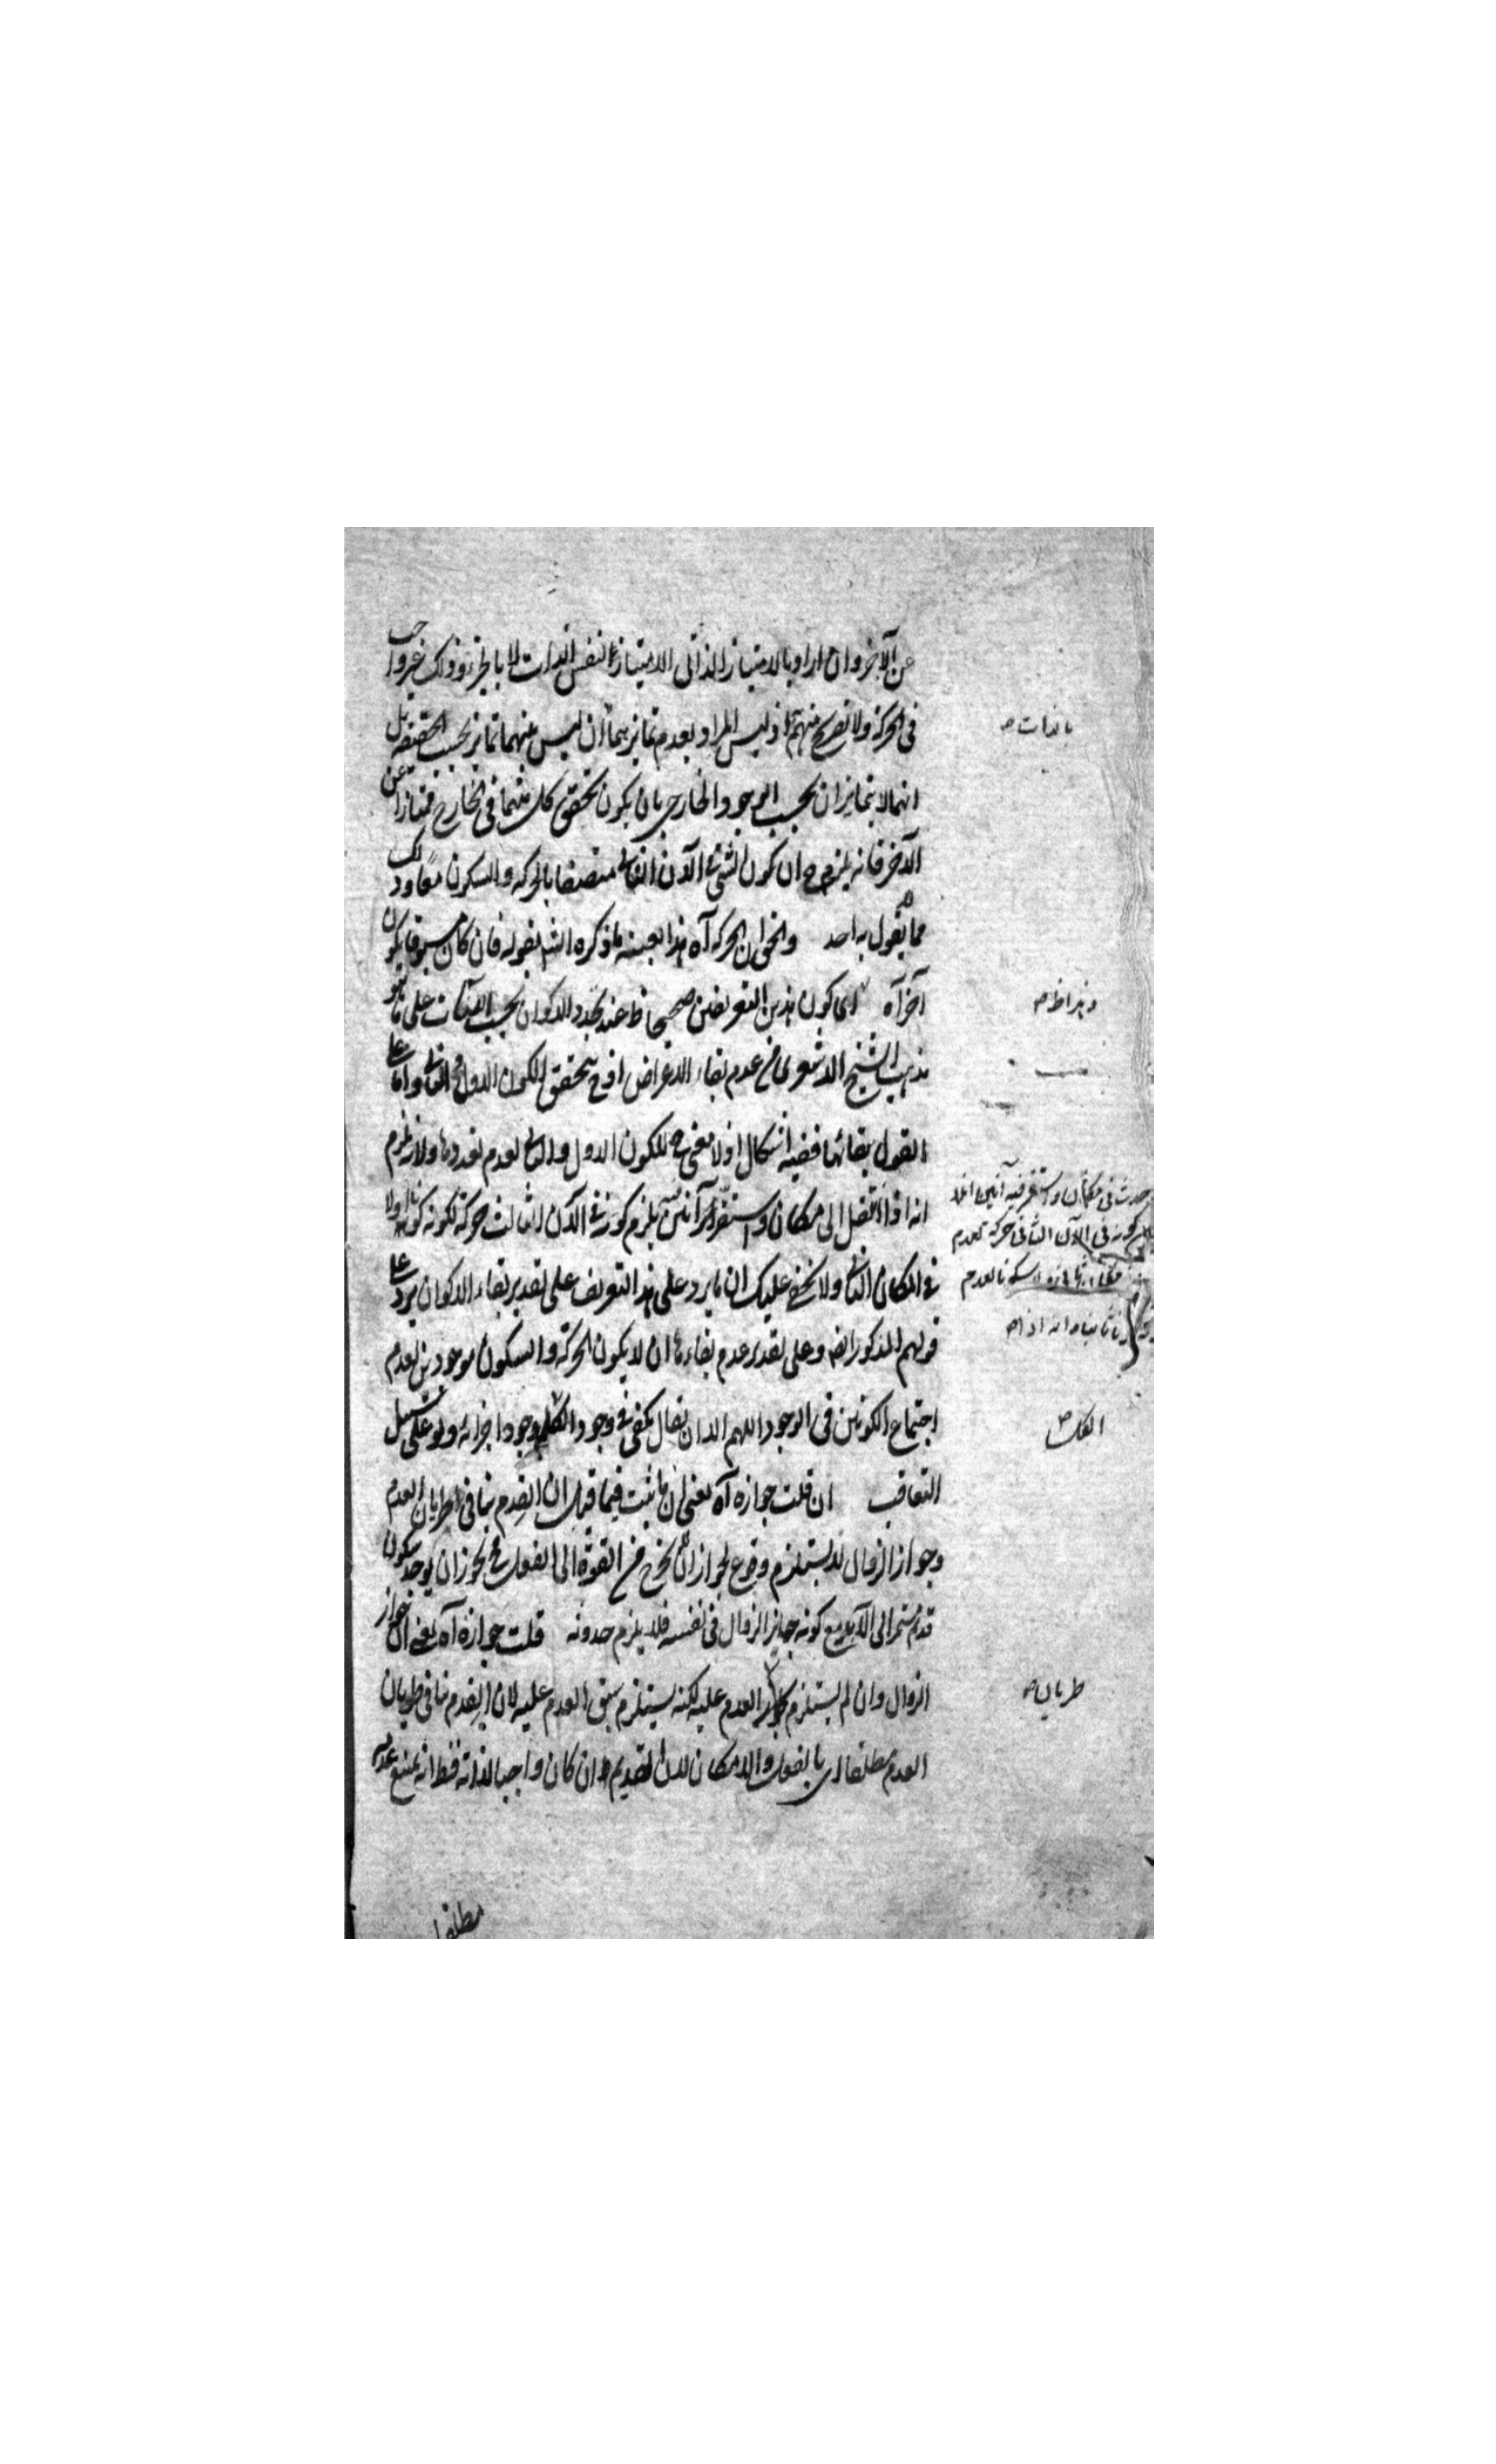 عن الآخر وان اراد بالامتياز الذاتى الامتياز بنفس الذات لا بالجزء وذلك غير واجب
فى الحركة ولا تصريح منهم اذ ليس المراد بعدم تمايزهما ان ليس بينهما تمايز بحسب الحقيقة بل
انهما لا يتمايزان بحسب الوجود الخارجى بان يكون تحقق كل منهما فى الخارج ممتازا عن
الآخر فانه يلزم ح ان يكون الشئ فى الآن الثانى متصفا بالحركة والسكون معا وذلك
مما لم يقول به احد والحق ان الحركة آه هذا بعينه ما ذكره الشه بقوله فان كان مسبوقا بكون
آخر آه اى كون هذين التعريفين صحيحا ظ عند تجدد الاكوان بحسب الآنات على ما هو
مذهب الشيخ الاشعرى من عدم بقاء الاعراض اذ ح يتحقق الكون الاول والثانى واما على
القول ببقائها ففيه اشكال اذ لا معنى ح للكون الاول والثانى لعدم تعددها ولانه يلزم
انه اذا انتقل الى مكان واستقر آنين يلزم كونه فى الآن الثالث حركة لكونه كونا اولا
فى المكان الثانى ولا يخفى عليك ان ما يرد على هذا التعريف على تقدير بقاء الاكوان يرد على
قولهم المذكور ايضه وعلى تقدير عدم بقاءها ان لا يكون الحركة والسكون موجودين لعدم
اجتماع الكونين فى الوجود اللهم الا ان يقال يكفى فى وجود الكل وجود اجزائه ولو على سبيل
التعاقب ان قلت جوازه آه يعنى ان ما ثبت فيما قبل ان القدم ينافى طريان العدم
وجواز الزوال لا يستلزم وقوع لجواز ان لا يخرج من القوة الى الفعل فح يجوز ان يوجد سكون
قديم مستمر الى الابد مع كونه جايز الزوال فى نفسه فلا يلزم حدوثه قلت جوازه آه يعنى ان جواز
الزوال وان لم يستلزم العدم عليه لكنه يستلزم سبق العدم عليه لان القدم ينافى طريان
العدم مطلقا اى بالفعل والامكان لان القديم ان كان واجبا لذاته فظ انه يمتنع عدمه
مطلقا
بالذات صه
وهذا ظ صه
حدث فى مكان واستقر فيه آنين
كونه فى الآن الثانى حركة لعدم
الكل صه
طريان صه